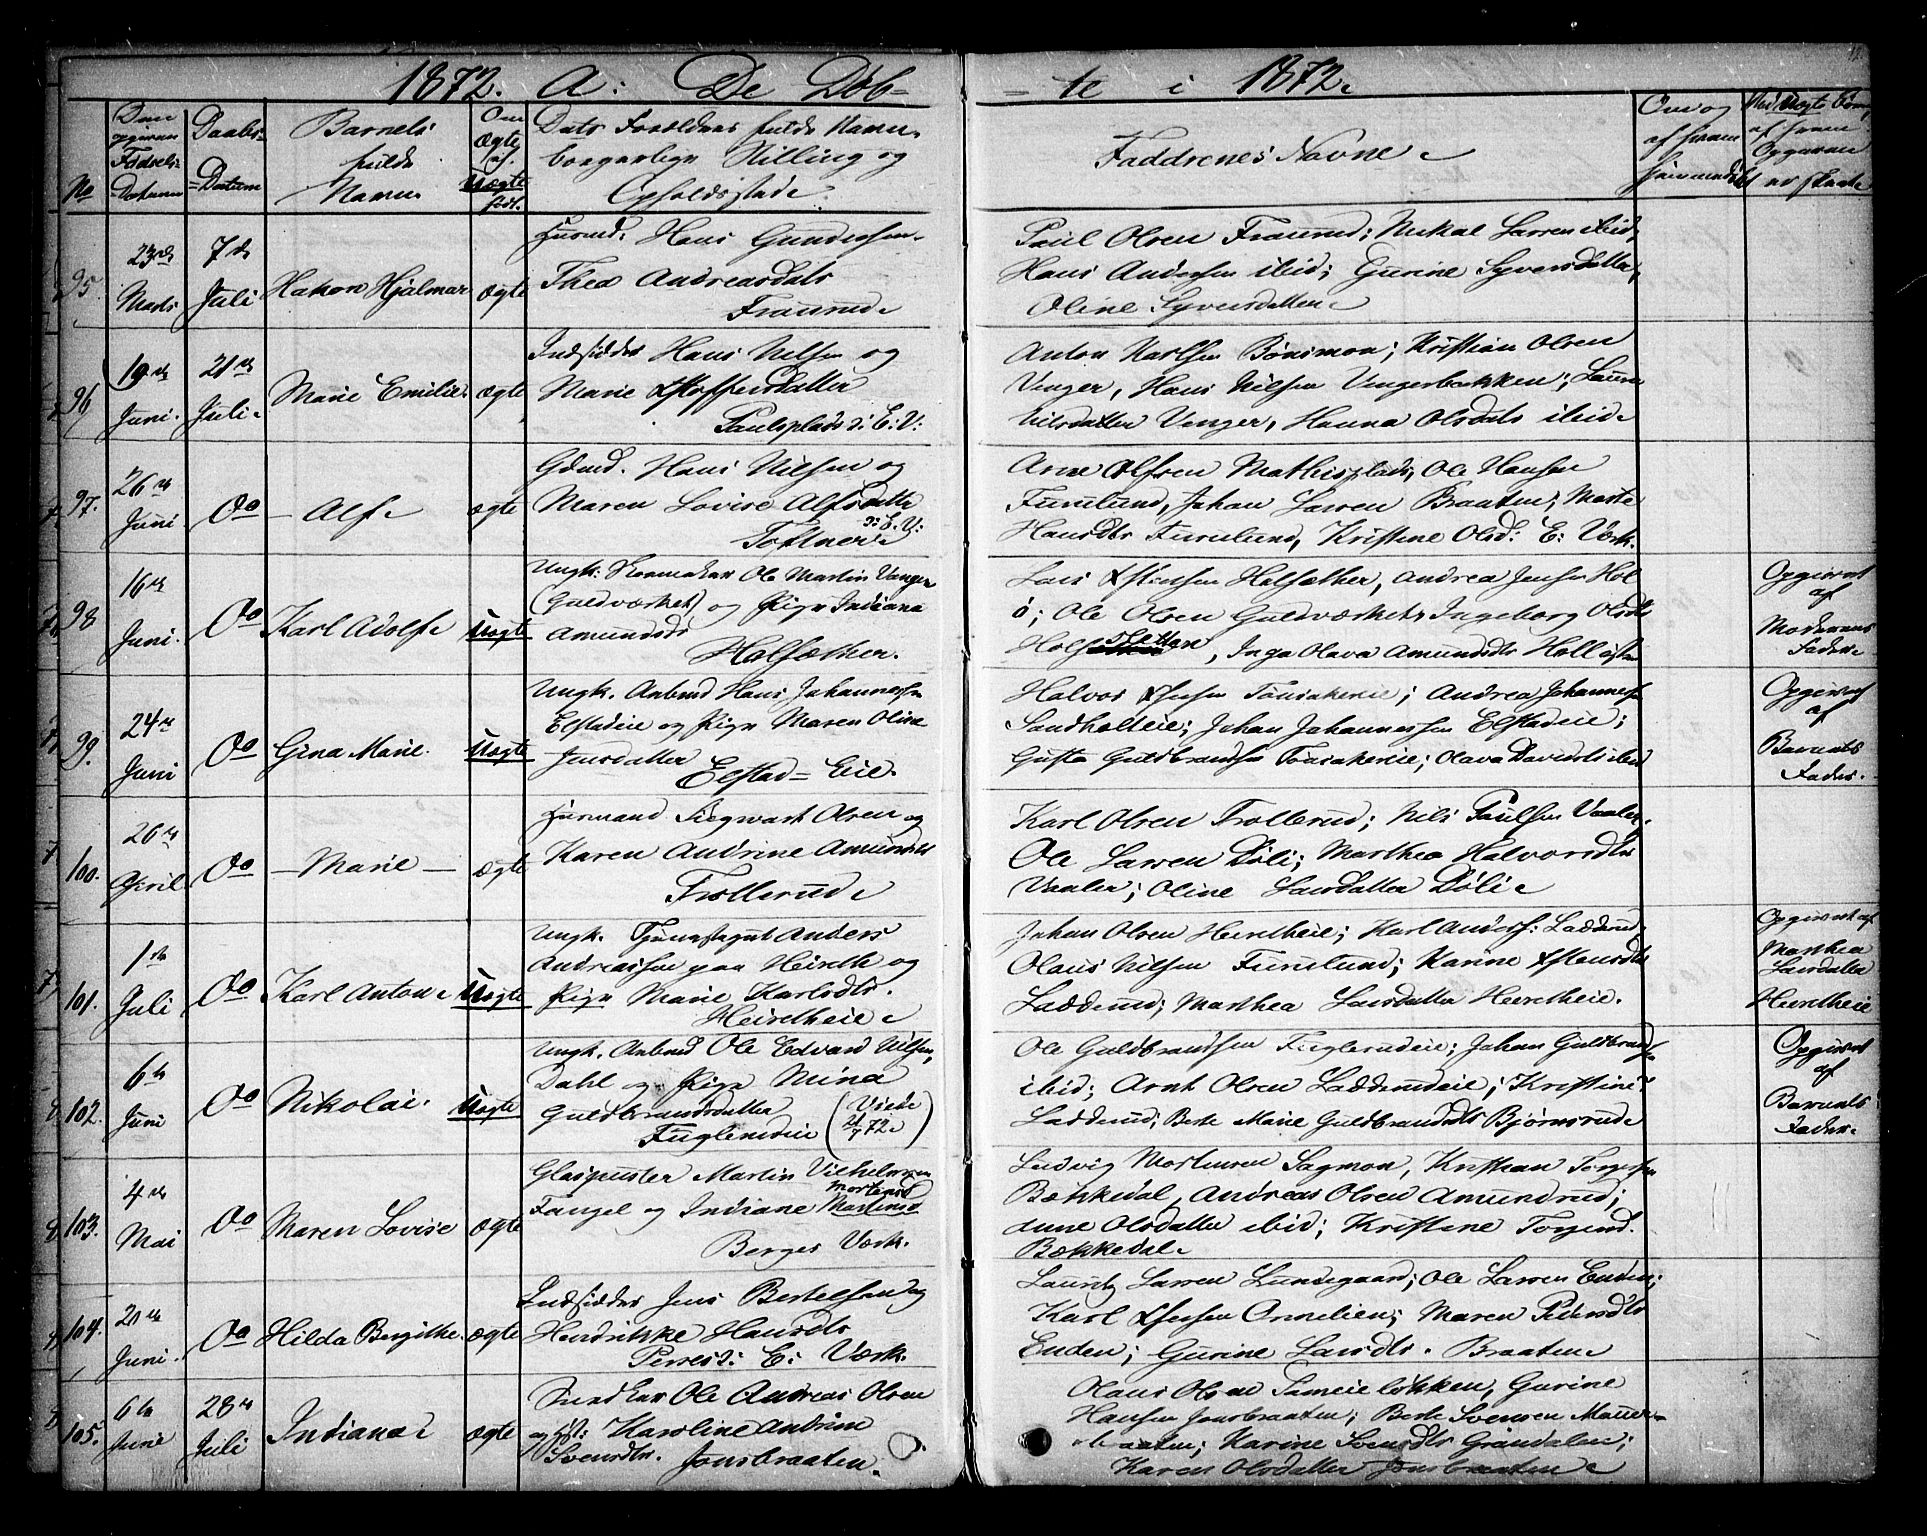 1872. A: De Døb- - te i 1872.
No
Den opgivne Fødsels-Datum
Daabs-Datum
Barnets fulde Navn
Om Ægte ell. Uægte født.
Dets Forældres fulde Navn, borgerlige Stilling og Opholdsstad.
Faddrenes Navne
Om og af hvem hjemmedøbt
Ved Uægte Børn, af hvem Opgaven er skeet
95.
23de Marts
7de Juli
Hakon Hjalmar
ægte
Husmd. Hans Gundersen
Thea Andreasdatr
Fraurud
Paul Olsen Fraurud; Mikal Larsen ibid;
Hans Andersen ibid; Gurine Syversdatter,
Oline Syversdatter
96
19de Juni.
21de Juli
Marie Emilie.
ægte
Indsidder Hans Nilsen og
Marie Kristoffersdatter
Paulsplads: E: V:
Anton Karlsen Bønsmoa; Kristian Olsen
Venger, Hans Nilsen Vengerbakken; Laura
Nilsdatter Venger, Hanna Olsdatr ibid
97.
26de Juni
Do
Alf
ægte
Gdmd. Hans Nilsen og
Maren Lovise Alfsdatter
Tostnes: E. V:
Arne Olsen Mathisplads, Ole Hansen
Furulund, Johan Larsen Braaten; Marte
Hansdtr Furulund, Kristine Olsd: E: Værk.
98
16de Juni.
Do
Karl Adolf
Uægte
Ungk: Skomaker Ole Martin Venger
(Guldværket) og Pige Indiana
Amundsdtr
Holsæther.
Lars Kristensen Holsæther, Andrea Jensen Hol
ø; Ole Olsen Guldværket, Ingeborg Olsdtr
Hols, Inga Olava Amundsdtr
Opgivet af Moderens Fader
99.
24de Juni
Do
Gina Marie.
Uægte
Ungk. Arbmd Hans Johannessen
Elstadeie og Pige Maren Oline
Jensdatter
Elstad-Eie.
Halvor Jensen Tonsakereie; Andrea Johannesn
Sandholteie; Johan Johannessen Elstadeie;
Gusta Guldbrandsen Tonsakereie; Olava Davidsdtr ibid
Opgivet af Barnets Fader.
100.
26de April
Do
Marie
ægte
Husmand Siegwart Olsen og
Karen Andrine Amundsdtr
Trollerud
Karl Olsen Trollerud; Nils Paulsen Vaaler.
Ole Larsen Døli; Marthea Halvorsdtr
Vaaler; Oline Larsdatter Døli
101.
1ste Juli
Do
Karl Anton
Uægte
Ungk. Tjenestegut Anders
Andreassen paa Heireth og
Pige Marie Karlsdtr.
Heiretheie
Johan Olsen Heiretheie; Karl Anders: Ladderud,
Olaus Nilsen Furulund; Karine Kristensdtr
Ladderud; Marthea Larsdatter Heiretheie.
Opgivet af Marthea Larsdatter Heiretheie
102.
6te Juni
Do
Nikolai.
Uægte
Ungk. Arbmd Ole Edvard Nilsen,
Dahl og Pige Mina
Guldbrandsdatter
Fuglerudeie (Viede 21/7 72)
Ole Guldbrandsen Fuglerudeie; Johan Guldbrandsen
ibid; Arnt Olsen Ladderudeie; Kristine
Ladderud; Berte Marie Guldbrandsdtr Bjørnsrud
Opgivet af Barnets Fader
103.
4de Mai
Do
Maren Lovise
ægte
Glaspuster Martin Vilhelmsen
Fangel og Indiane Martinsd Mortensd
Berges Værk.
Ludvig Mortensen Sagmoa, Kristian Torgersen
Bækkedal, Andreas Olsen Amundrud;
Anne Olsdatter ibid; Kristine Torgersd.
Bækkedal
104.
21de Juni.
Do
Hilda Bergithe.
ægte
Indsidder Jens Bertelsen og
Hendrikke Hansdtr
E: Værk.
Lauritz Larsen Lundegaard; Ole Larsen Enden;
Karl Jensen Ornelien; Maren Pedersdtr
Enden; Gurine Larsdtr. Braaten
105.
6te Juni
28de Juli
Indiana
ægte
Snedker Ole Andreas Olsen
og H: Karoline Andrine
Svensdtr. Jonsbraaten.
Olaus Olsen Sameieløkken, Gurine
Hansen Jonsbraaten; Berte Svensen Maurer-
braaten; Karine Svensdtr Grøndalen;
Karen Olsdatter Jonsbraaten